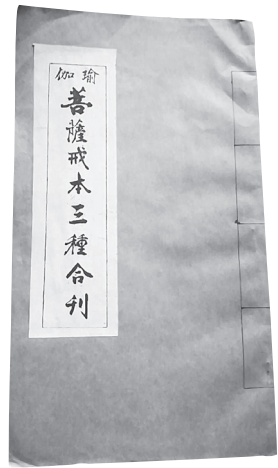 瑜伽
菩薩戒本三種合刊